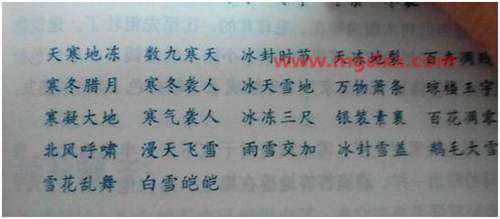 天寒地冻 数九寒天 冰封时节 天冻地裂 百卉凋残
www.mgsxx.com
寒冬腊月 寒冬袭人 冰天雪地 万物萧条 琼楼玉宇
寒凝大地 寒气袭人 冰冻三尺 银装素裹 百花凋零
北风呼啸 漫天飞雪 雨雪交加 冰封雪盖 鹅毛大雪
雪花乱舞 白雪皑皑